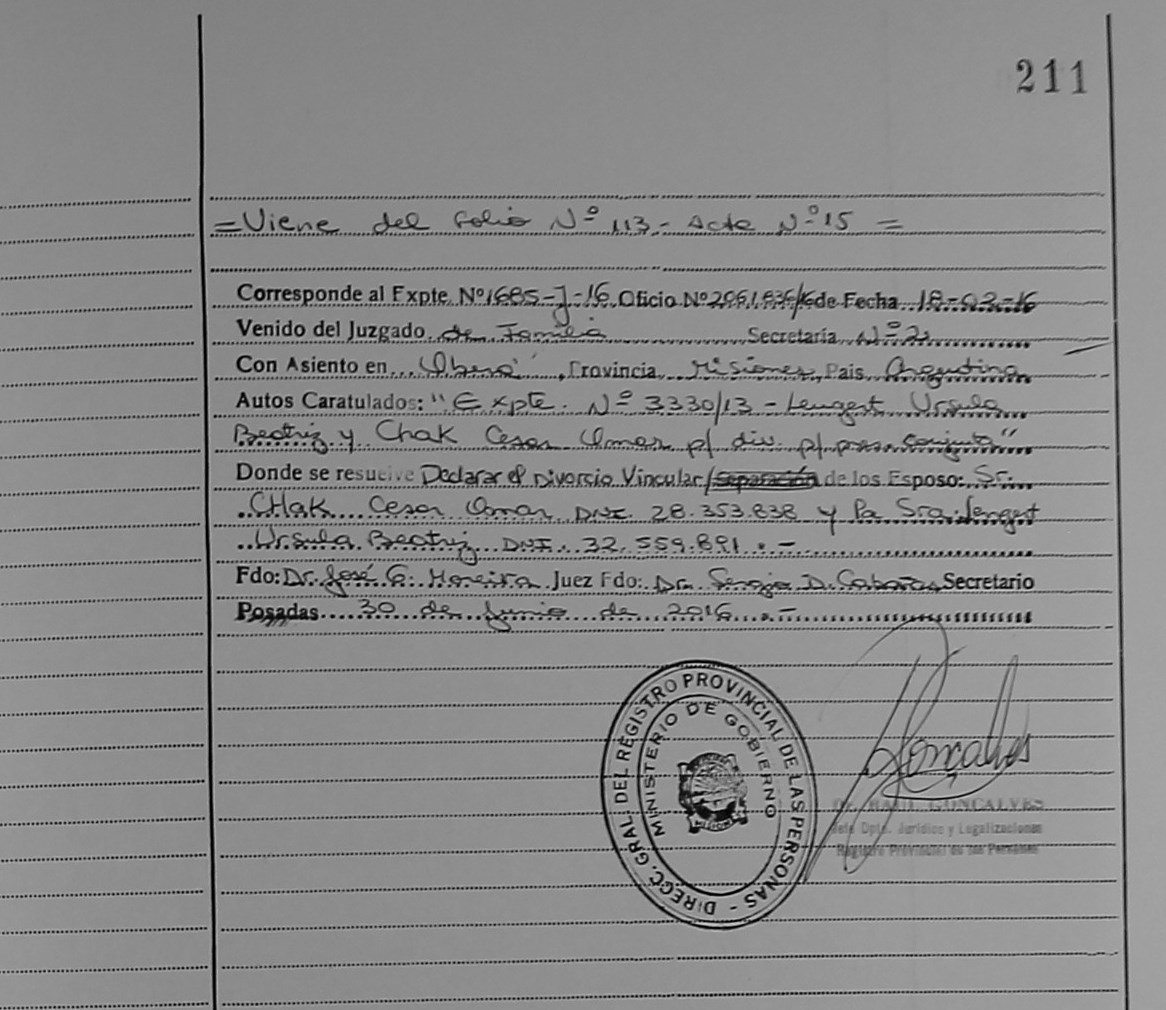 211
=Viene del folio Nº 113.- Acta Nº 15 =
Corresponde al Expte. Nº 1685-J-16. Oficio Nº de Fecha 18-03-16
Venido del Juzgado de Familia Secretaría Nº 2
Con Asiento en Oberá, Provincia Misiones, Pais Argentina
Autos Caratulados: "Expte. Nº 3330/13 - Lengert Ursula
Beatriz y Chak Cesar Omar p/ div. p/ pres. conjunta"
Donde se resuelve Declarar el Divorcio Vincular/separación de los Esposo: Sr.
CHak Cesar Omar DNI. 28.353.838 y la Sra. Lengert
Ursula Beatriz DNI. 32.559.891.-
Fdo: Dr. José G. Moreira Juez Fdo: Dr. Sergio D. Secretario
Posadas 30 de Junio de 2016.-
DIRECC. GRAL. DEL REGISTRO PROVINCIAL DE LAS PERSONAS -
MINISTERIO DE GOBIERNO
MISIONES
Goncalves
Dr. RAUL GONCALVES
Jefe Dpto. Jurídico y Legalizaciones
Registro Provincial de las Personas